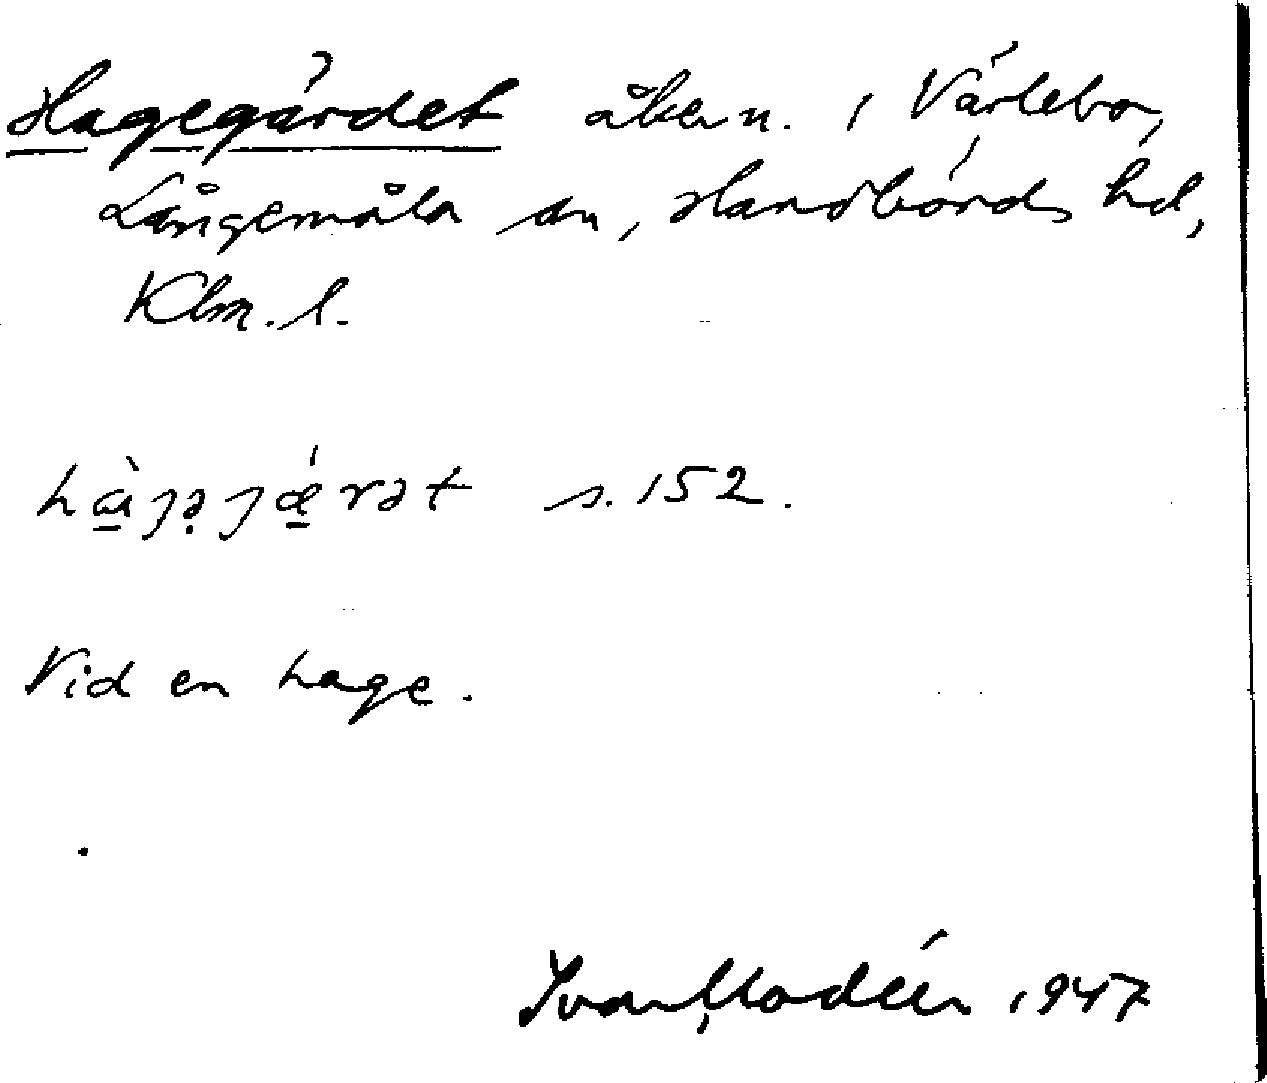 Hagegärdet åkern. i Värlebo,
Långemåla sn, Handbörds hd,
Klm. l.
hàɟə̣ɟǽrət s. 152.
Vid en hage.
Ivar Modéer 1947